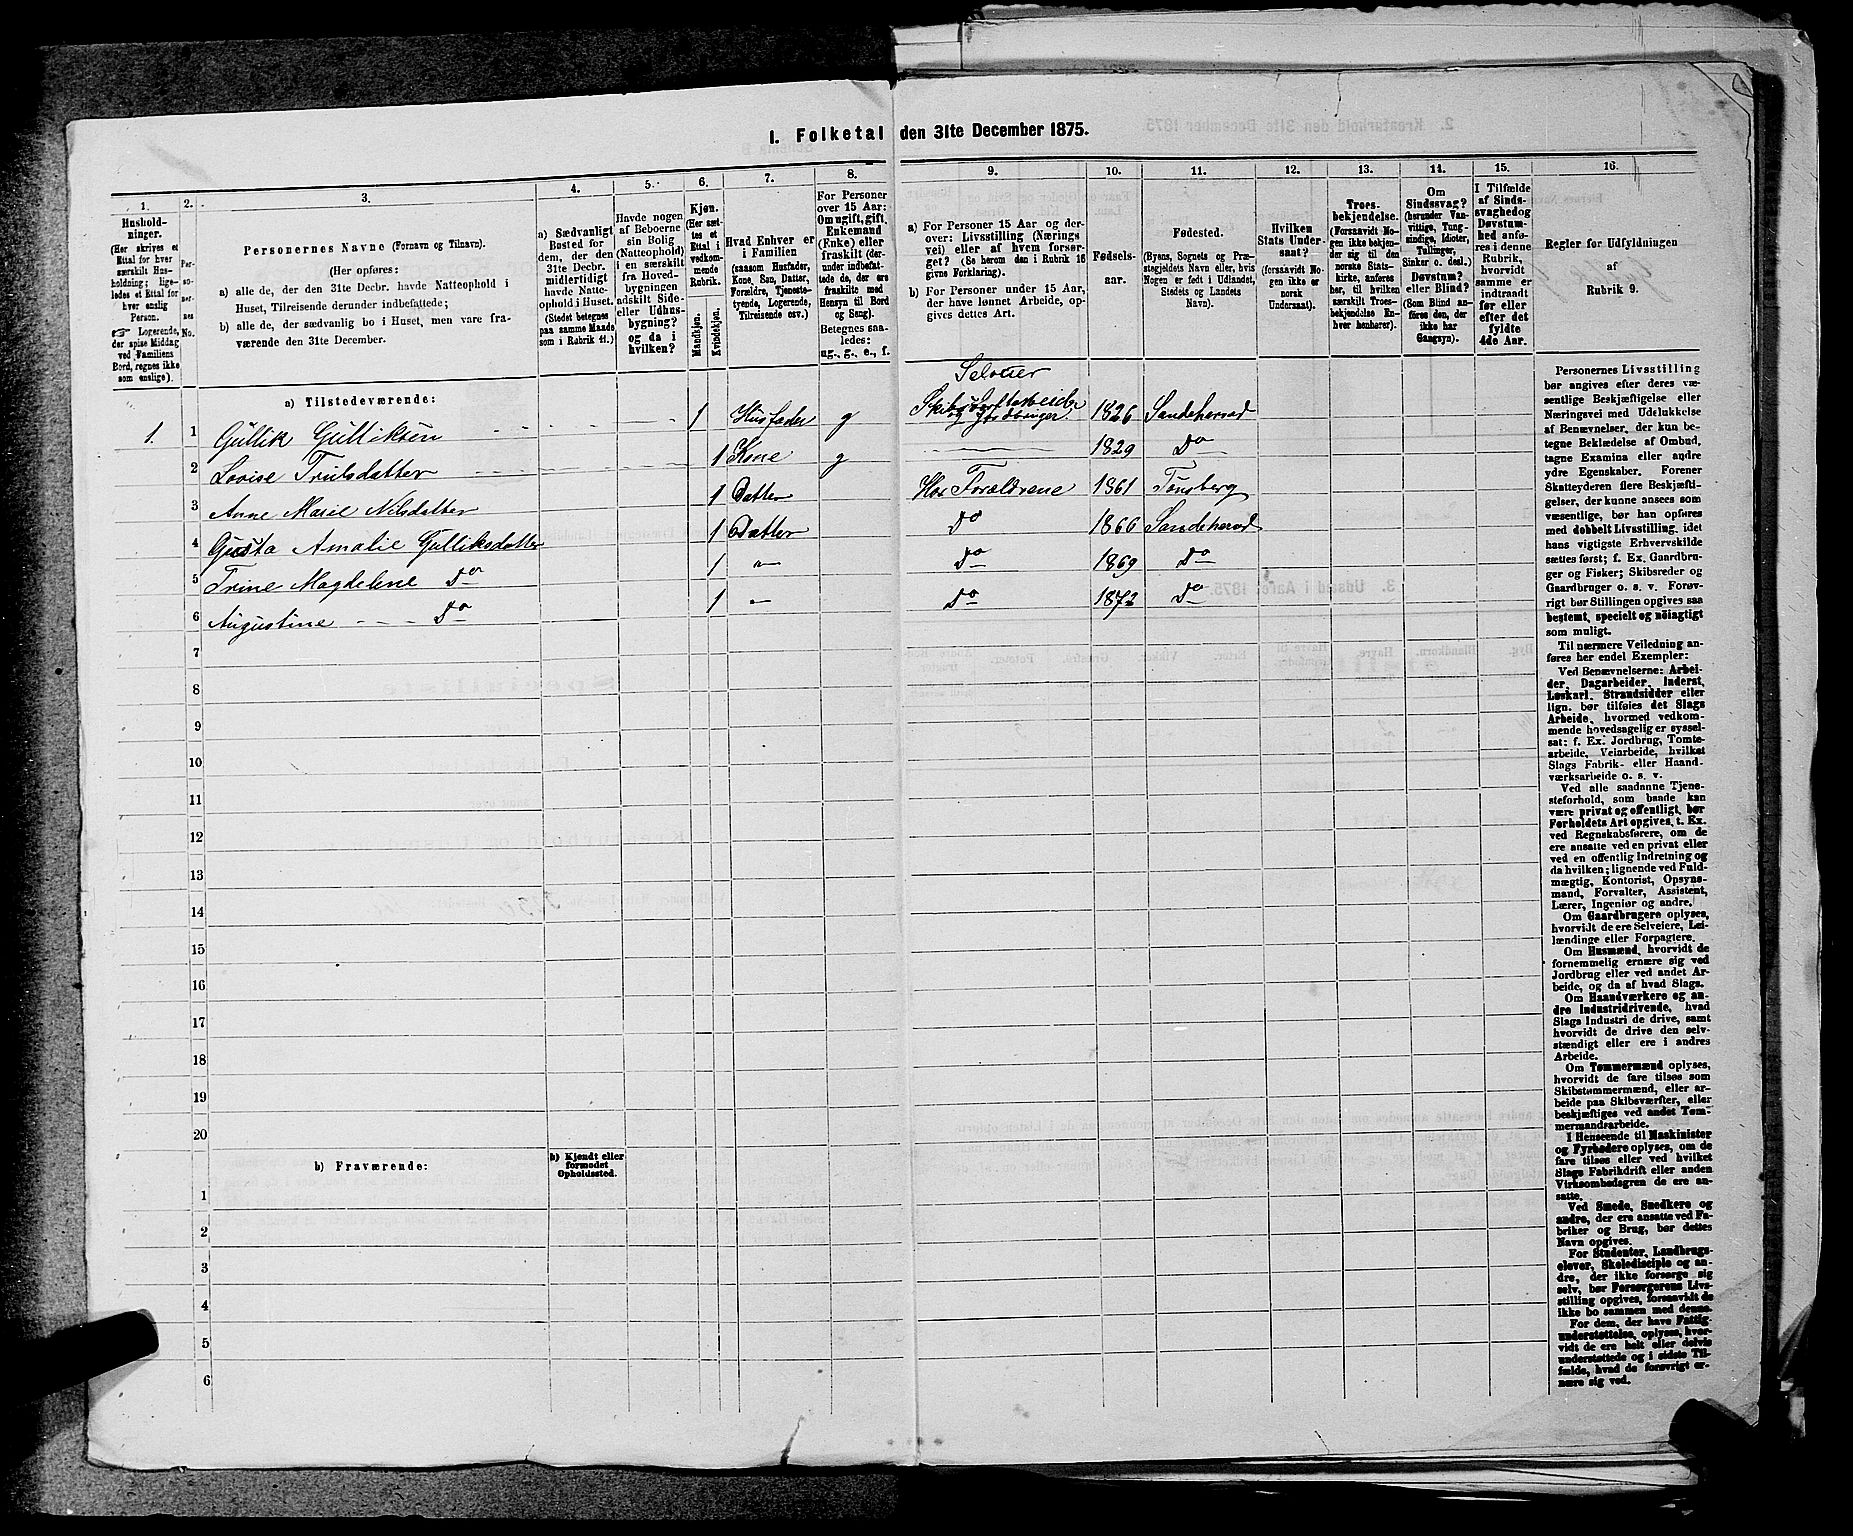 1. Folketal den 31te December 1875.
1.
Hushold-
ninger.
(Her skrives et
Ettal for hver
særskilt Hus-
holdning; lige-
ledes et Ettal for
hver enslig
Person.
☞ Logerende,
der spise Middag
ved Familiens
Bord, regnes ikke
som enslige).
2.
Per-
so-
ner-
nes
No.
3.
Personernes Navne (Fornavn og Tilnavn).
(Her opføres:
a) alle de, der den 31te Decbr. havde Natteophold i
Huset, Tilreisende derunder indbefattede;
b) alle de, der sædvanlig bo i Huset, men vare fra-
værende den 31te December.
4.
a) Sædvanligt
Bosted for
dem, der den
31te Decbr.
midlertidigt
havde Natte-
ophold i Huset.
(Stedet betegnes
paa samme Maade
som i Rubrik 11.)
5.
Havde nogen
af Beboerne
sin Bolig
(Natteophold)
i en særskilt
fra Hoved-
bygningen
adskilt Side-
eller Udhus-
bygning?
og da i
hvilken?
6.
Kjøn.
(Her sæt-
tes et
Ettal i
vedkom-
mende
Rubrik.
Mandkjøn.
Kvindekjøn.
7.
Hvad Enhver er
i Familien
(saasom Husfader,
Kone, Søn, Datter,
Forældre, Tjeneste-
tyende, Logerende,
Tilreisende osv.)
8.
For Personer
over 15 Aar:
Om ugift, gift,
Enkemand
(Enke) eller
fraskilt (der-
under indbefat-
tede de, der ere
fraskilte med
Hensyn til Bord
og Seng).
Betegnes saa-
ledes:
ug., g., e., f.
9.
a) For Personer 15 Aar og der-
over: Livsstilling (Nærings
vei) eller af hvem forsør-
get? (Se herom den i Rubrik 16
givne Forklaring).
b) For Personer under 15 Aar,
der have lønnet Arbeide, op-
gives dettes Art.
10.
Fødsels-
aar.
11.
Fødested.
(Byens, Sognets og Præ-
stegjeldets Navn eller, hvis
Nogen er født i Udlandet,
Stedets og Landets
Navn).
12.
Hvilken
Stats Under-
saat?
(forsaavidt No-
gen ikke er
norsk
Undersaat).
13.
Troes-
bekjendelse.
(Forsaavidt No-
gen ikke bekjen-
der sig til den
norske Stats-
kirke, anføres
her, til hvilken
særskilt Troes-
bekjendelse En-
hver henhører).
14.
Om
Sindssvag?
(herunder Van-
vittige, Tung-
sindige, Idioter,
Tullinger,
Sinker o. desl.)
Døvstum?
eller Blind?
(Som Blind an-
føres den, der
ikke har
Gangsyn).
15.
I Tilfælde
af Sinds-
svaghed og
Døvstum-
hed anfø-
res i denne
Rubrik,
hvorvidt
samme er
indtraadt
før eller
efter det
fyldte
4de Aar.
16.
Regler for Udfyldningen
af
Rubrik 9.
a) Tilstedeværende:
Selveier
1. 1 Gullik Gulliksen 1 Husfader g Skibstømmerarbeider
og Jordbruger. 1826 Sandeherred
2 Lovise Trulsdatter 1 Kone g 1829 Do
3 Anne Marie Nilsdatter 1 Datter Hos Forældrene 1861 Tønsberg
4 Gusta Amalie Gulliksdatter 1 Datter Do 1866 Sandeherred
5 Trine Magdelene Do 1 " Do 1869 Do
6 Augustine Do 1 " Do 1872 Do
7
8
9
10
11
12
13
14
15
16
17
18
19
20
b) Fraværende:
b) Kjendt eller
formodet
Opholdssted.
1
2
3
4
5
6
Personernes Livsstilling
bør angives efter deres væ-
sentlige Beskjæftigelse eller
Næringsvei med Udelukkelse
af Benævnelser, der kun be-
tegne Beklædelse af Ombud,
tagne Examina eller andre
ydre Egenskaber. Forener
Skatteyderen flere Beskjæfti-
gelser, der kunne ansees som
væsentlige, bør han opføres
med dobbelt Livsstilling, idet
hans vigtigste Erhvervskilde
sættes først; f. Ex. Gaardbru-
ger og Fisker; Skibsreder og
Gaardbruger o. s. v. Forøv-
rigt bør Stillingen opgives saa
bestemt, specielt og nøiagtigt
som muligt.
Til nærmere Veiledning an-
føres her endel Exempler:
Ved Benævnelserne: Arbei-
der, Dagarbeider, Inderst,
Løskarl, Strandsidder eller
lign. bør tilføies det Slags
Arbeide, hvormed vedkom-
mende hovedsagelig er syssel-
sat: f. Ex. Jordbrug, Tomte-
arbeide, Veiarbeide, hvilket
Slags Fabrik- eller Haand-
værksarbeide o. s. v.
Ved alle saadanne Tjene-
steforhold, som baade kan
være privat og offentligt, bør
Forholdets Art opgives, t. Ex.
ved Regnskabsførere, om de
ere ansatte ved en privat eller
ved en offentlig Indretning og
da hvilken; lignende ved Fuld-
mægtig, Kontorist, Opsyns-
mand, Forvalter, Assistent,
Lærer, Ingeniør og andre.
Om Gaardbrugere oplyses,
hvorvidt de ere Selveiere, Lei-
lændinge eller Forpagtere.
Om Husmænd, hvorvidt de
fornemmelig ernære sig ved
Jordbrug eller ved andet Ar-
beide, og da af hvad Slags.
Om Haandværkere og an-
dre Industridrivende, hvad
Slags Industri de drive, samt
hvorvidt de drive den selv-
stændigt eller ere i andres
Arbeide.
Om Tømmermænd oplyses,
hvorvidt de fare tilsøs som
Skibstømmermænd, eller ar-
beide paa Skibsværfter, eller
beskjæftiges ved andet Tøm-
mermandsarbeide.
I Henseende til Maskinister
og Fyrbødere oplyses, om de
fare tilsøs eller ved hvilket
Slags Fabrikdrift eller anden
Virksomhedsgren de ere an-
satte.
Ved Smede, Snedkere og
andre, der ere ansatte ved Fa-
briker og Brug, bør dettes
Navn opgives.
For Studenter, Landbrugs-
elever, Skoledisciple og an-
dre, der ikke forsørge sig
selv, bør Forsørgerens Livs-
stilling opgives, forsaavidt de
ikke bo sammen med denne.
For dem, der have Fattig-
understøttelse, oplyses, hvor-
vidt de ere helt eller delvis
understøttede og i sidste Til-
fælde, hvad de forøvrigt er-
nære sig ved.